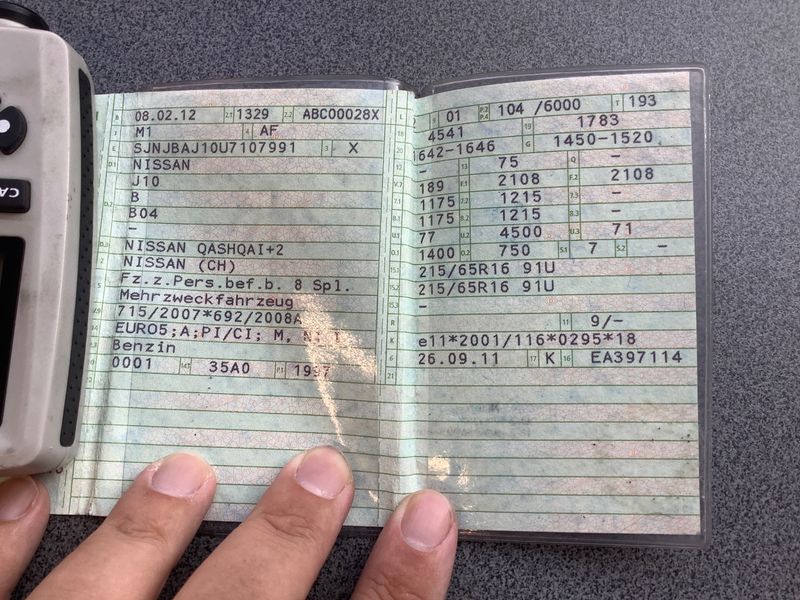 B 08.02.12 2.1 1329 2.2 ABC00028X
J M1 4 AF
E SJNJBAJ10U7107991 3 X
D.1 NISSAN
J10
B
D.2 B04
-
D.3 NISSAN QASHQAI+2
2 NISSAN (CH)
5 Fz.z.Pers.bef.b. 8 Spl.
Mehrzweckfahrzeug
V.9 715/2007*692/2008A
14 EURO5;A;PI/CI; M,
P.3 Benzin
10 0001 14.1 35A0 P.1 1997
L 9 01 P.2 P.4 104 /6000 T 193
18 4541 19 1783
20 1642-1646 G 1450-1520
- 13 75 Q -
V.7 189 F.1 2108 F.2 2108
7.1 1175 7.2 1215 7.3 -
8.1 1175 8.2 1215 8.3 -
U.1 77 U.2 4500 U.3 71
O.1 1400 O.2 750 S.1 7 S.2 -
15.1 215/65R16 91U
15.2 215/65R16 91U
15.3 -
R 11 9/-
K e11*2001/116*0295*18
6 26.09.11 17 K 16 EA397114
21
CA